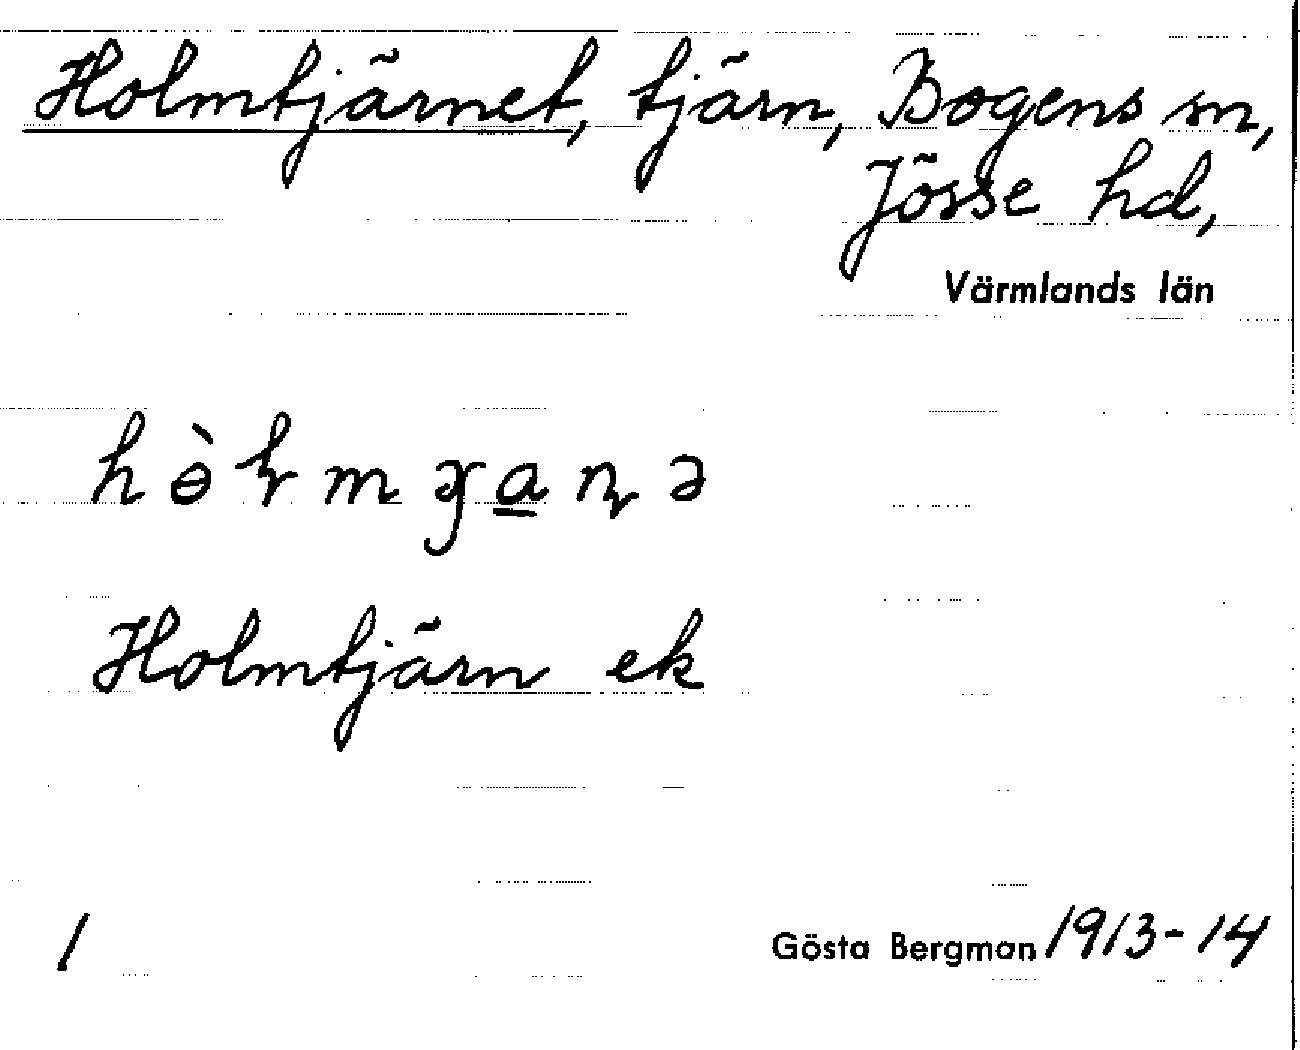 Holmtjärnet, tjärn, Bogens sn,
Jösse hd,
Värmlands län
Holmtjärn ek
1
Gösta Bergman 1913-14